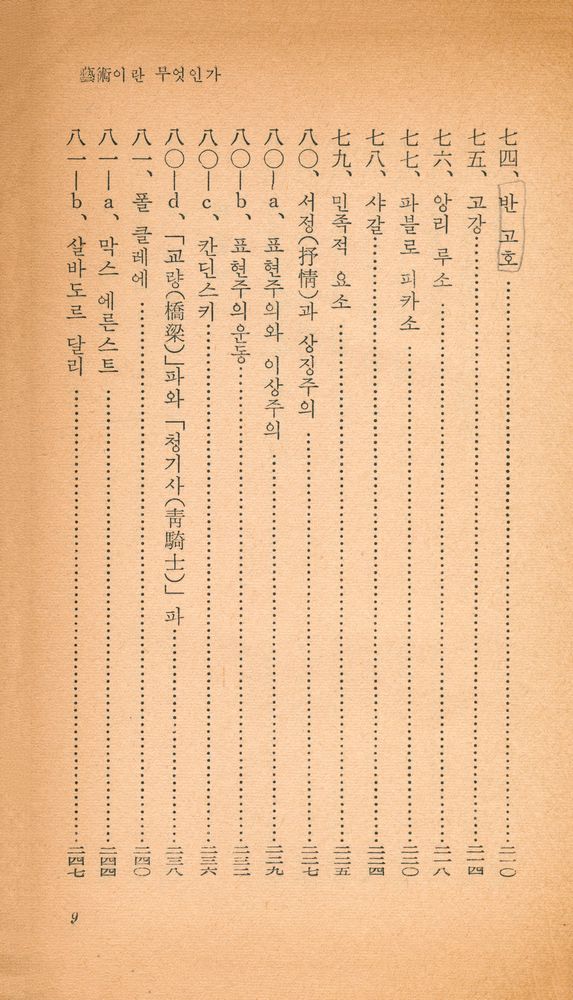 藝術이란 무엇인가
七四、반 고호 …… 二一〇
七五、고강 …… 二一四
七六、앙리 루소 …… 二一八
七七、파블로 피카소 …… 二二〇
七八、샤갈 …… 二二四
七九、민족적 요소 …… 二二五
八〇、서정(抒情)과 상징주의 …… 二二七
八〇—a、표현주의와 이상주의 …… 二二九
八〇—b、표현주의운동 …… 二三二
八〇—c、칸딘스키 …… 二三六
八〇—d、「교량(橋梁)」파와 「청기사(靑騎士)」파 …… 二三八
八一、폴 클레에 …… 二四〇
八一—a、막스 에른스트 …… 二四四
八一—b、살바도르 달리 …… 二四七
9